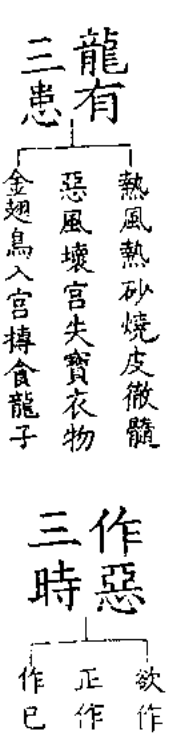 龍有
三患
熱風熱砂燒皮徹髓
惡風壞宮失寶衣物
金翅鳥入宮摶食龍子
作惡
三時
欲作
正作
作已